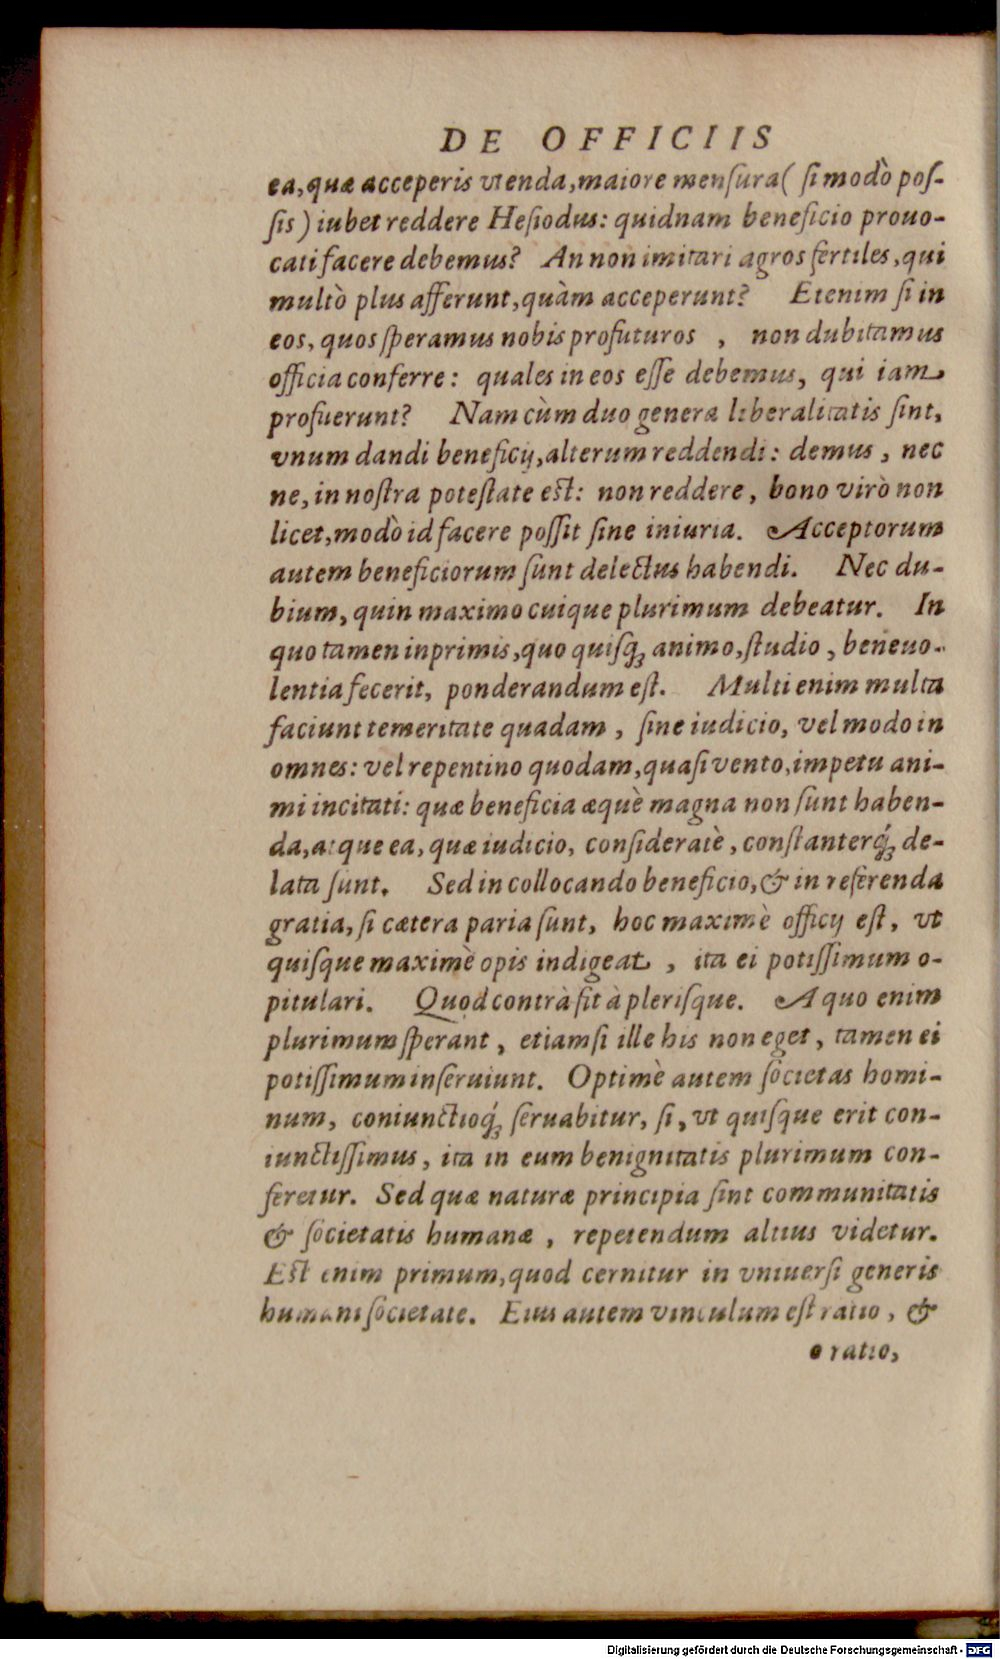 DE OFFICIIS
ea, quæ acceperis vtenda, maiore menſura ( ſi modò poſ-
ſis ) iubet reddere Heſiodus: quidnam beneficio prouo-
cati facere debemus? An non imitari agros fertiles, qui
multò plus afferunt, quàm acceperunt? Etenim ſi in
eos, quos ſperamus nobis profuturos , non dubitamus
officia conferre: quales in eos eſſe debemus, qui iam
profuerunt? Nam cùm duo genera liberalitatis ſint,
vnum dandi beneficij, alterum reddendi: demus, nec
ne, in noſtra poteſtate est: non reddere, bono virò non
licet, modò id facere poſſit ſine iniuria. Acceptorum
autem beneficiorum ſunt delectus habendi. Nec du-
bium, quin maximo cuique plurimum debeatur. In
quo tamen inprimis, quo quiſq́; animo, ſtudio, beneuo-
lentia fecerit, ponderandum eſt. Multi enim multa
faciunt temeritate quadam, ſine iudicio, vel modo in
omnes: vel repentino quodam, quaſi vento, impetu ani-
mi incitati: quæ beneficia æquè magna non ſunt haben-
da, atque ea, quæ iudicio, conſideratè, conſtanterq́; de-
lata ſunt. Sed in collocando beneficio, & in referenda
gratia, ſi cætera paria ſunt, hoc maximè officij eſt, vt
quiſque maximè opis indigeat , ita ei potiſſimum o-
pitulari. Quod contrà fit à pleriſque. A quo enim
plurimum ſperant, etiamſi ille his non eget, tamen ei
potiſſimum inſeruiunt. Optimè autem ſocietas homi-
num, coniunctioq́; ſeruabitur, ſi, vt quiſque erit con-
iunctiſſimus, ita in eum benignitatis plurimum con-
feretur. Sed quæ naturæ principia ſint communitatis
& ſocietatis humanæ , repetendum altius videtur.
Est enim primum, quod cernitur in vniuerſi generis
humani ſocietate. Eius autem vinculum eſt ratio, &
oratio,
Digitalisierung gefördert durch die Deutsche Forschungsgemeinschaft - DFG